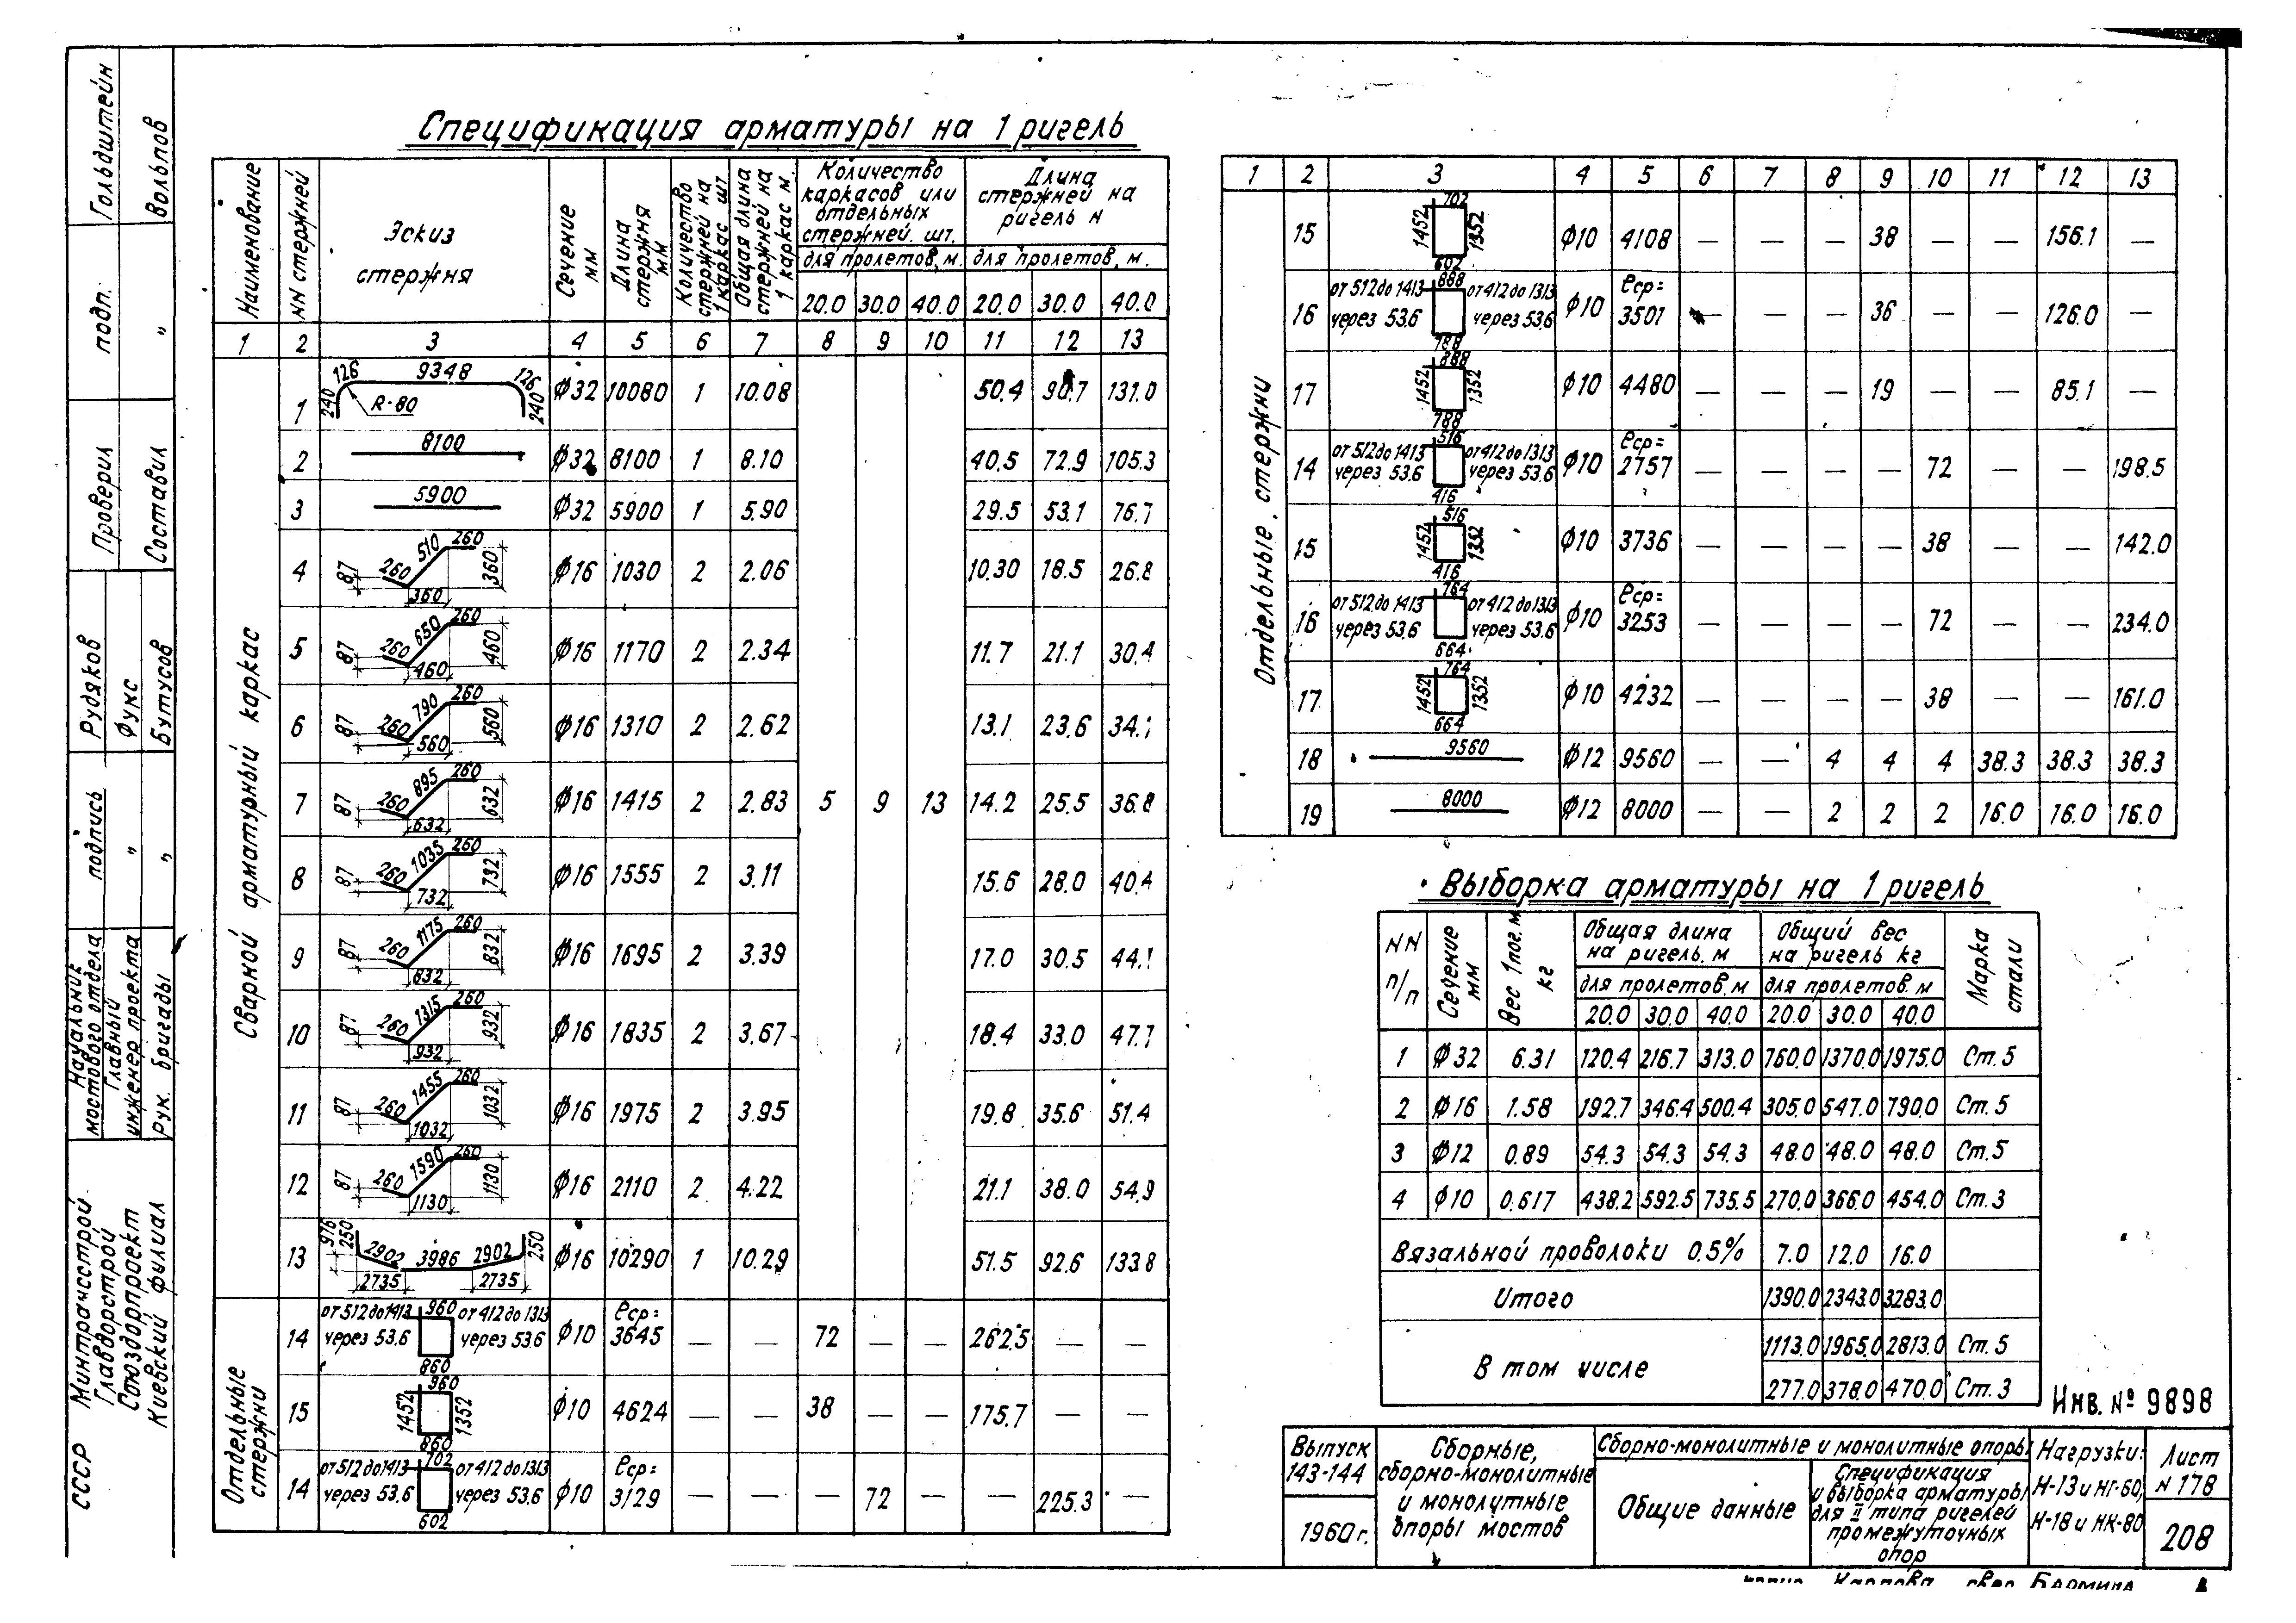 Спецификация арматуры на 1 ригель
Наименование | NN стержней | Эскиз стержня | Сечение мм | Длина стержня мм | Количество стержней на 1 каркас шт | Общая длина стержней на 1 каркас м. | Количество каркасов или отдельных стержней. шт. | Длина стержней на ригель м
для пролетов, м. | для пролетов, м.
20.0 | 30.0 | 40.0 | 20.0 | 30.0 | 40.0
1 | 2 | 3 | 4 | 5 | 6 | 7 | 8 | 9 | 10 | 11 | 12 | 13
Сварной арматурный каркас
1 | 240 126 9348 126 240 R-80 | ф32 | 10080 | 1 | 10.08 | 50.4 | 90.7 | 131.0
2 | 8100 | ф32 | 8100 | 1 | 8.10 | 40.5 | 72.9 | 105.3
3 | 5900 | ф32 | 5900 | 1 | 5.90 | 29.5 | 53.1 | 76.7
4 | 87 260 510 260 360 360 | ф16 | 1030 | 2 | 2.06 | 10.30 | 18.5 | 26.8
5 | 87 260 650 260 460 460 | ф16 | 1170 | 2 | 2.34 | 11.7 | 21.1 | 30.4
6 | 87 260 790 260 560 560 | ф16 | 1310 | 2 | 2.62 | 13.1 | 23.6 | 34.1
7 | 87 260 895 260 632 632 | ф16 | 1415 | 2 | 2.83 | 5 | 9 | 13 | 14.2 | 25.5 | 36.8
8 | 87 260 1035 260 732 732 | ф16 | 1555 | 2 | 3.11 | 15.6 | 28.0 | 40.4
9 | 87 260 1175 260 832 832 | ф16 | 1695 | 2 | 3.39 | 17.0 | 30.5 | 44.1
10 | 87 260 1315 260 932 932 | ф16 | 1835 | 2 | 3.67 | 18.4 | 33.0 | 47.7
11 | 87 260 1455 260 1032 1032 | ф16 | 1975 | 2 | 3.95 | 19.8 | 35.6 | 51.4
12 | 87 260 1590 260 1130 1130 | ф16 | 2110 | 2 | 4.22 | 21.1 | 38.0 | 54.9
13 | 976 250 2902 3986 2902 250 2735 2735 | ф16 | 10290 | 1 | 10.29 | 51.5 | 92.6 | 133.8
Отдельные стержни
14 | от 512 до 1413 через 53.6 960 от 412 до 1313 через 53.6 860 | ф10 | ℓср= 3645 | — | — | 72 | — | — | 262.5 | — | —
15 | 1452 960 1352 860 | ф10 | 4624 | — | — | 38 | — | — | 175.7 | — | —
14 | от 512 до 1413 через 53.6 702 от 412 до 1313 через 53.6 602 | ф10 | ℓср= 3129 | — | — | — | 72 | — | — | 225.3 | —
1 | 2 | 3 | 4 | 5 | 6 | 7 | 8 | 9 | 10 | 11 | 12 | 13
Отдельные стержни
15 | 1452 702 1352 602 | ф10 | 4108 | — | — | — | 38 | — | — | 156.1 | —
16 | от 512 до 1413 через 53.6 888 от 412 до 1313 через 53.6 788 | ф10 | ℓср= 3501 | — | — | — | 36 | — | — | 126.0 | —
17 | 1452 888 1352 788 | ф10 | 4480 | — | — | — | 19 | — | — | 85.1 | —
14 | от 512 до 1413 через 53.6 516 от 412 до 1313 через 53.6 416 | ф10 | ℓср= 2757 | — | — | — | — | 72 | — | — | 198.5
15 | 1452 516 1352 416 | ф10 | 3736 | — | — | — | — | 38 | — | — | 142.0
16 | от 512 до 1413 через 53.6 764 от 412 до 1313 через 53.6 664 | ф10 | ℓср= 3253 | — | — | — | — | 72 | — | — | 234.0
17 | 1452 764 1352 664 | ф10 | 4232 | — | — | — | — | 38 | — | — | 161.0
18 | 9560 | ф12 | 9560 | — | — | 4 | 4 | 4 | 38.3 | 38.3 | 38.3
19 | 8000 | ф12 | 8000 | — | — | 2 | 2 | 2 | 16.0 | 16.0 | 16.0
Выборка арматуры на 1 ригель
NN п/п | Сечение мм | Вес 1 пог. м кг | Общая длина на ригель, м | Общий вес на ригель кг | Марка стали
для пролетов, м | для пролетов. м
20.0 | 30.0 | 40.0 | 20.0 | 30.0 | 40.0
1 | ф32 | 6.31 | 120.4 | 216.7 | 313.0 | 760.0 | 1370.0 | 1975.0 | Ст.5
2 | ф16 | 1.58 | 192.7 | 346.4 | 500.4 | 305.0 | 547.0 | 790.0 | Ст.5
3 | ф12 | 0.89 | 54.3 | 54.3 | 54.3 | 48.0 | 48.0 | 48.0 | Ст.5
4 | ф10 | 0.617 | 438.2 | 592.5 | 735.5 | 270.0 | 366.0 | 454.0 | Ст.3
Вязальной проволоки 0.5% | 7.0 | 12.0 | 16.0
Итого | 1390.0 | 2343.0 | 3283.0
В том числе | 1113.0 | 1965.0 | 2813.0 | Ст.5
277.0 | 378.0 | 470.0 | Ст.3
Инв. № 9898
Выпуск 143-144
1960 г.
Сборные, сборно-монолитные и монолитные опоры мостов
Сборно-монолитные и монолитные опоры
Общие данные
Спецификация и выборка арматуры для II типа ригелей промежуточных опор
Нагрузки: Н-13 и НГ-60, Н-18 и НК-80
Лист N 178
208
Карпова
СССР Минтрансстрой Главдорстрой Союздорпроект Киевский филиал
Начальник мостового отдела | подпись | Рудяков
Главный инженер проекта | " | Фукс
Рук. бригады | " | Бутусов
Проверил | подп. | Гольдштейн
Составил | " | Вольпов